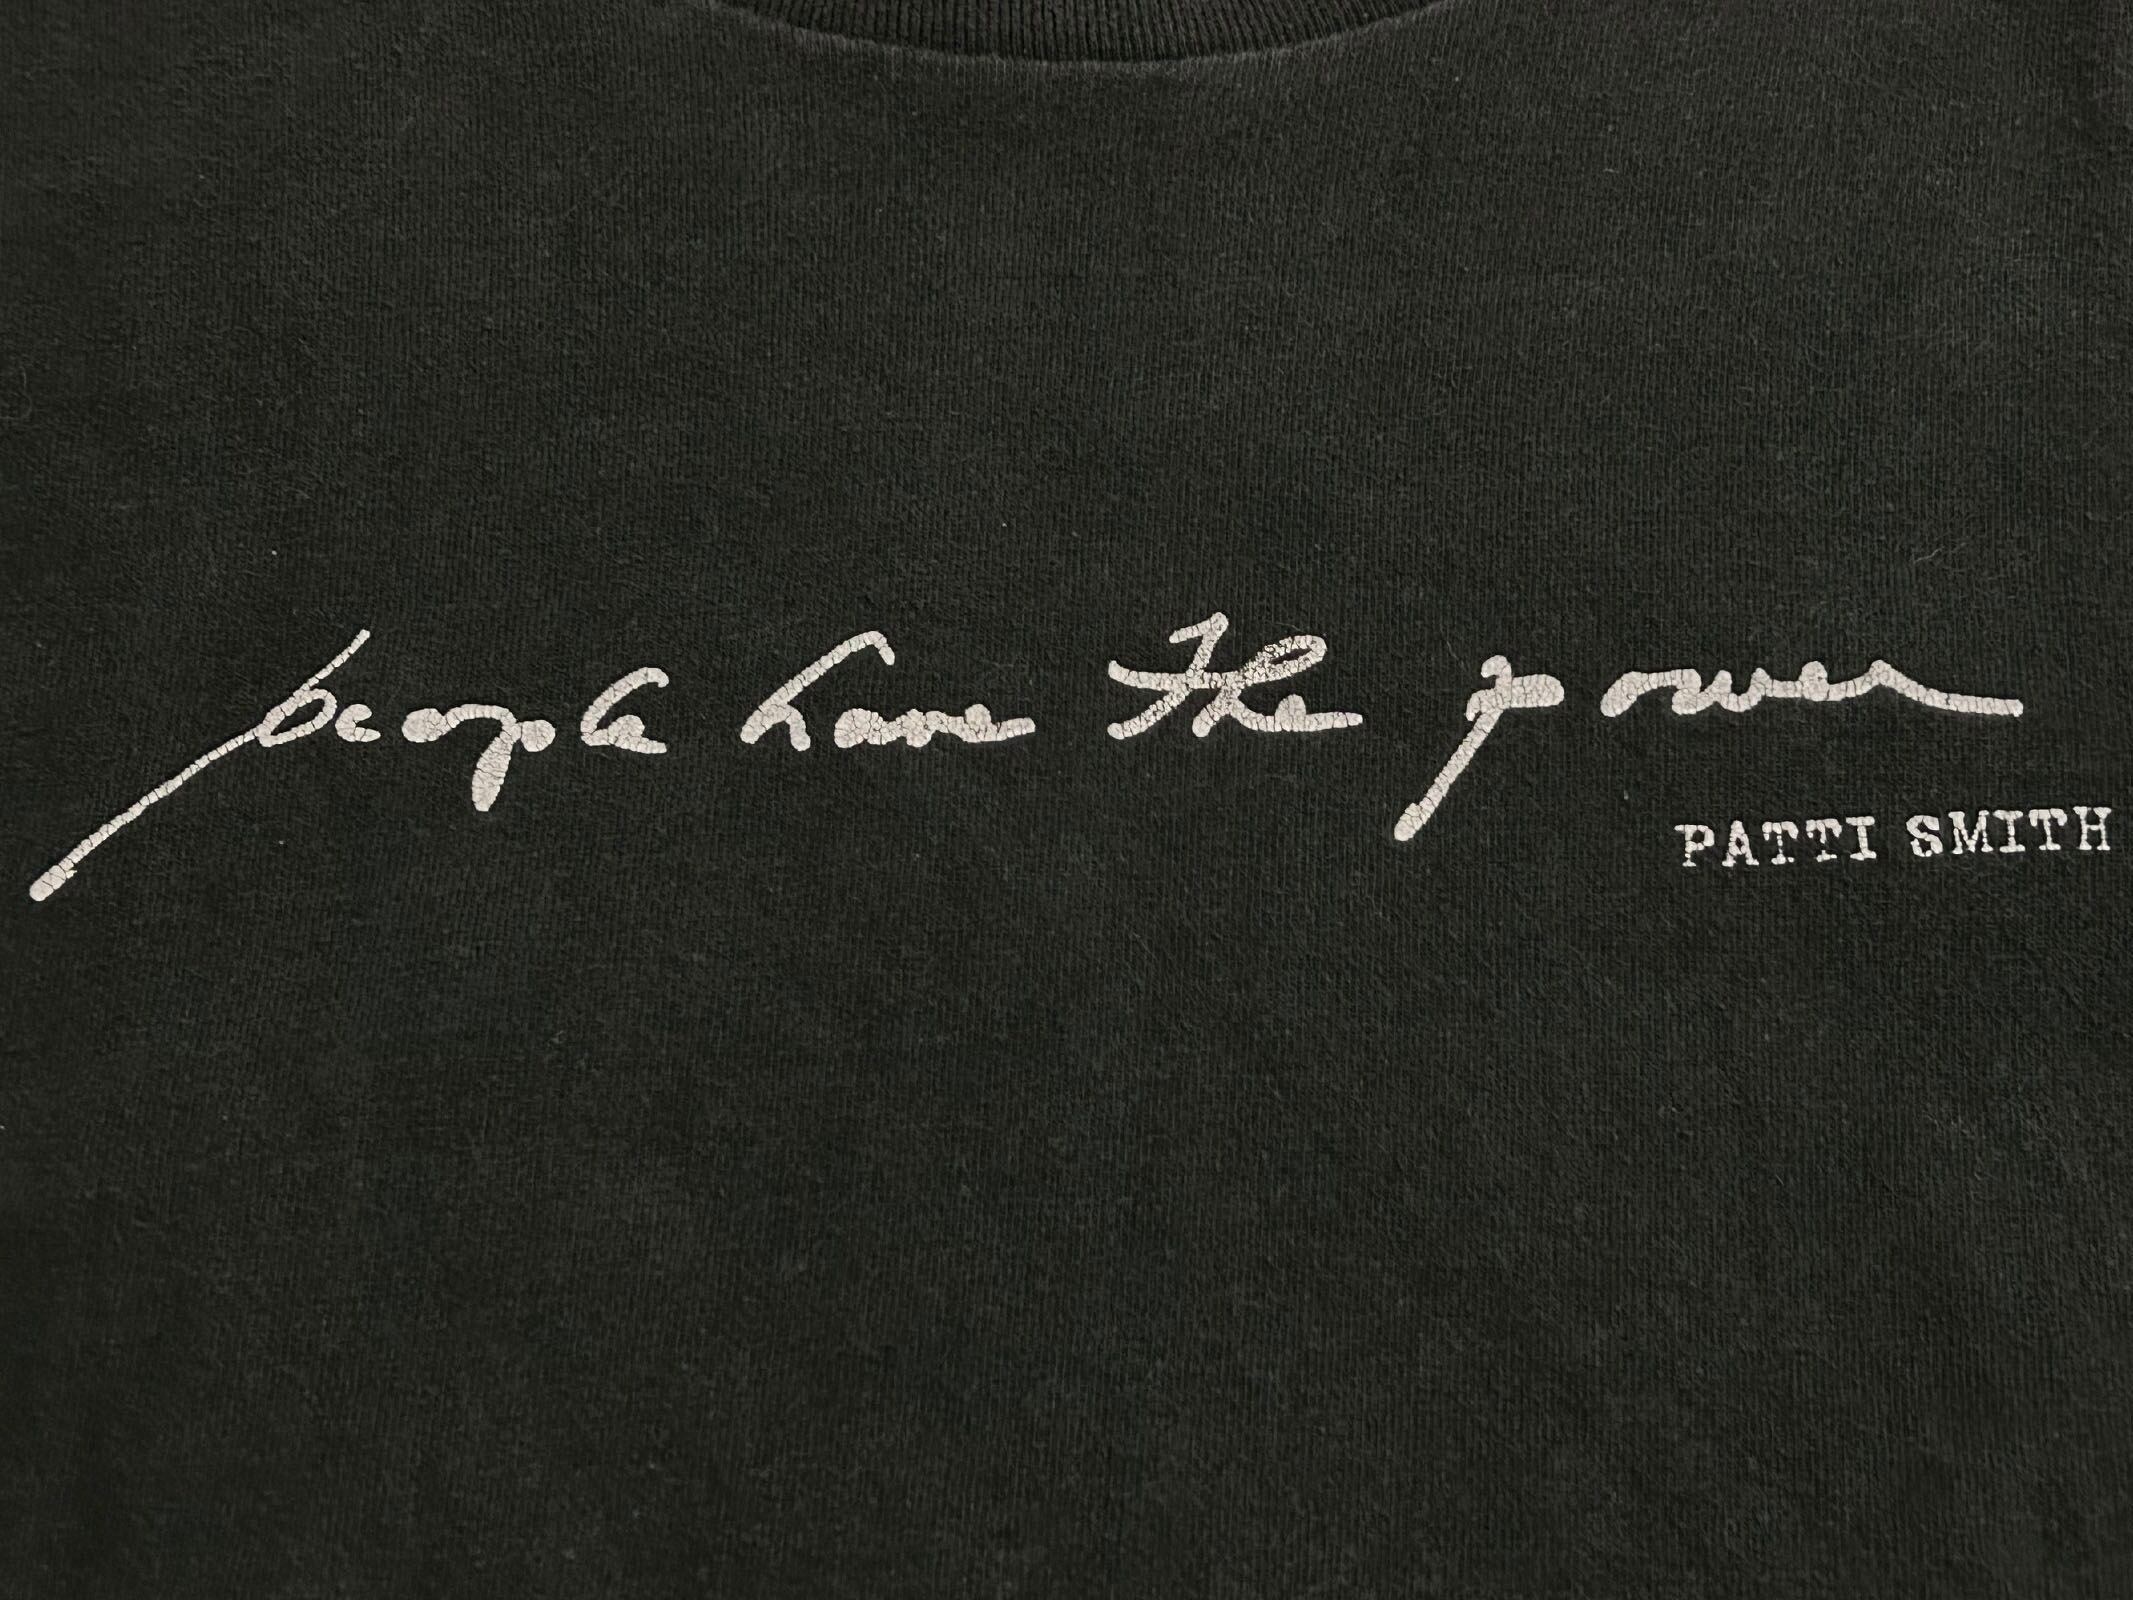 people have the power
PATTI SMITH